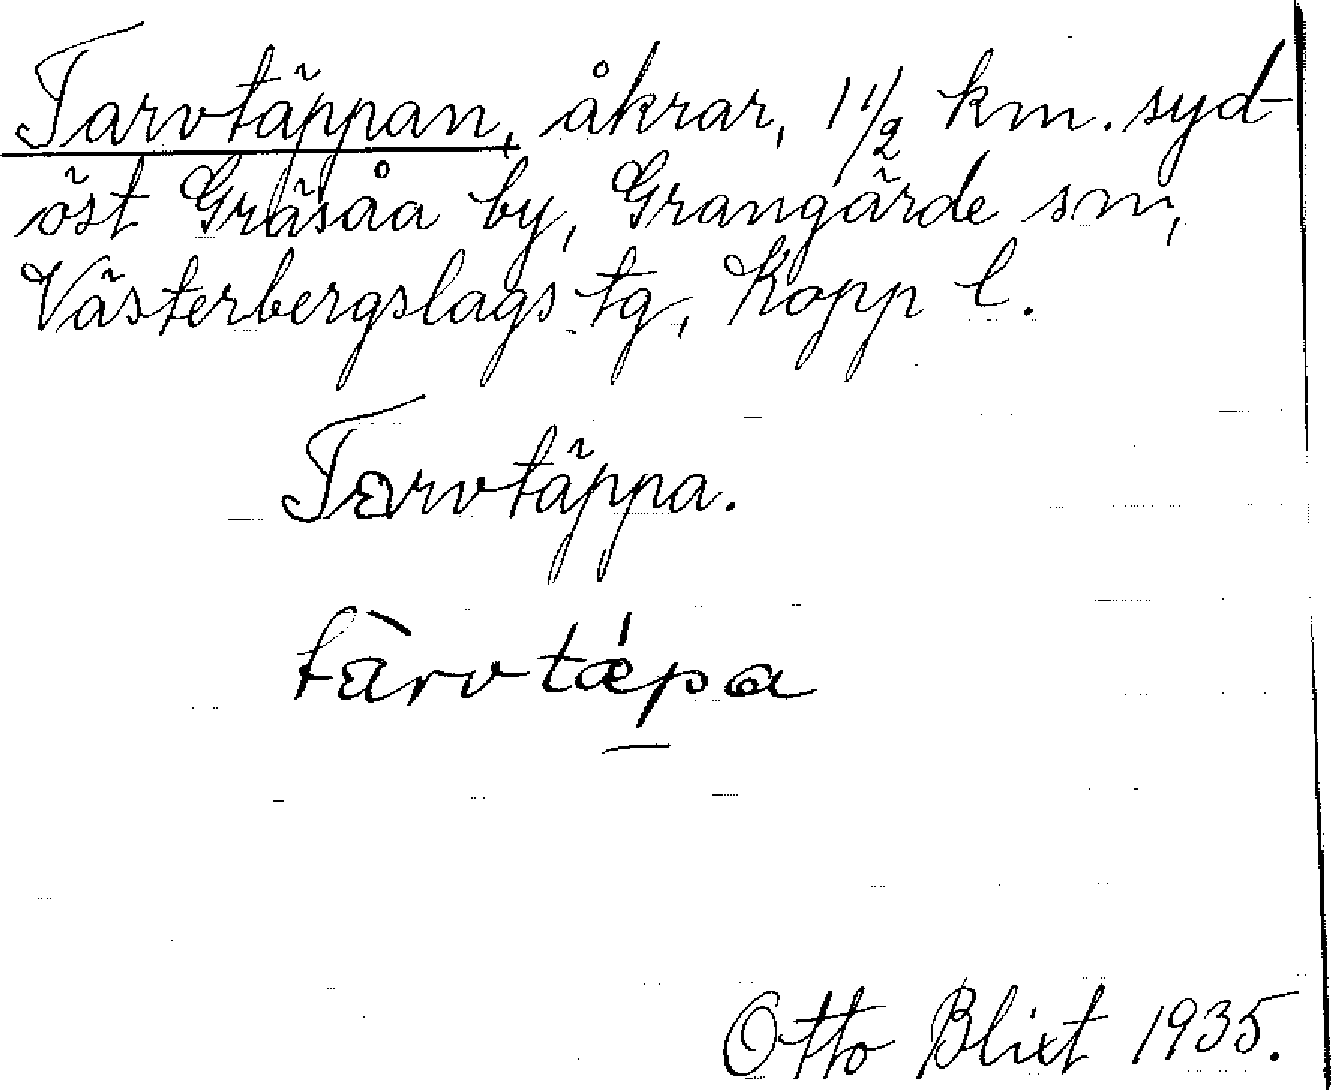 Tarvtäppan, åkrar, 1 1/2 km. syd-
öst Gräsåa by, Grangärde sn,
Västerbergslags tg, Kopp l.
Tarvtäppa.
tàrvtǽpa
Otto Blixt 1935.